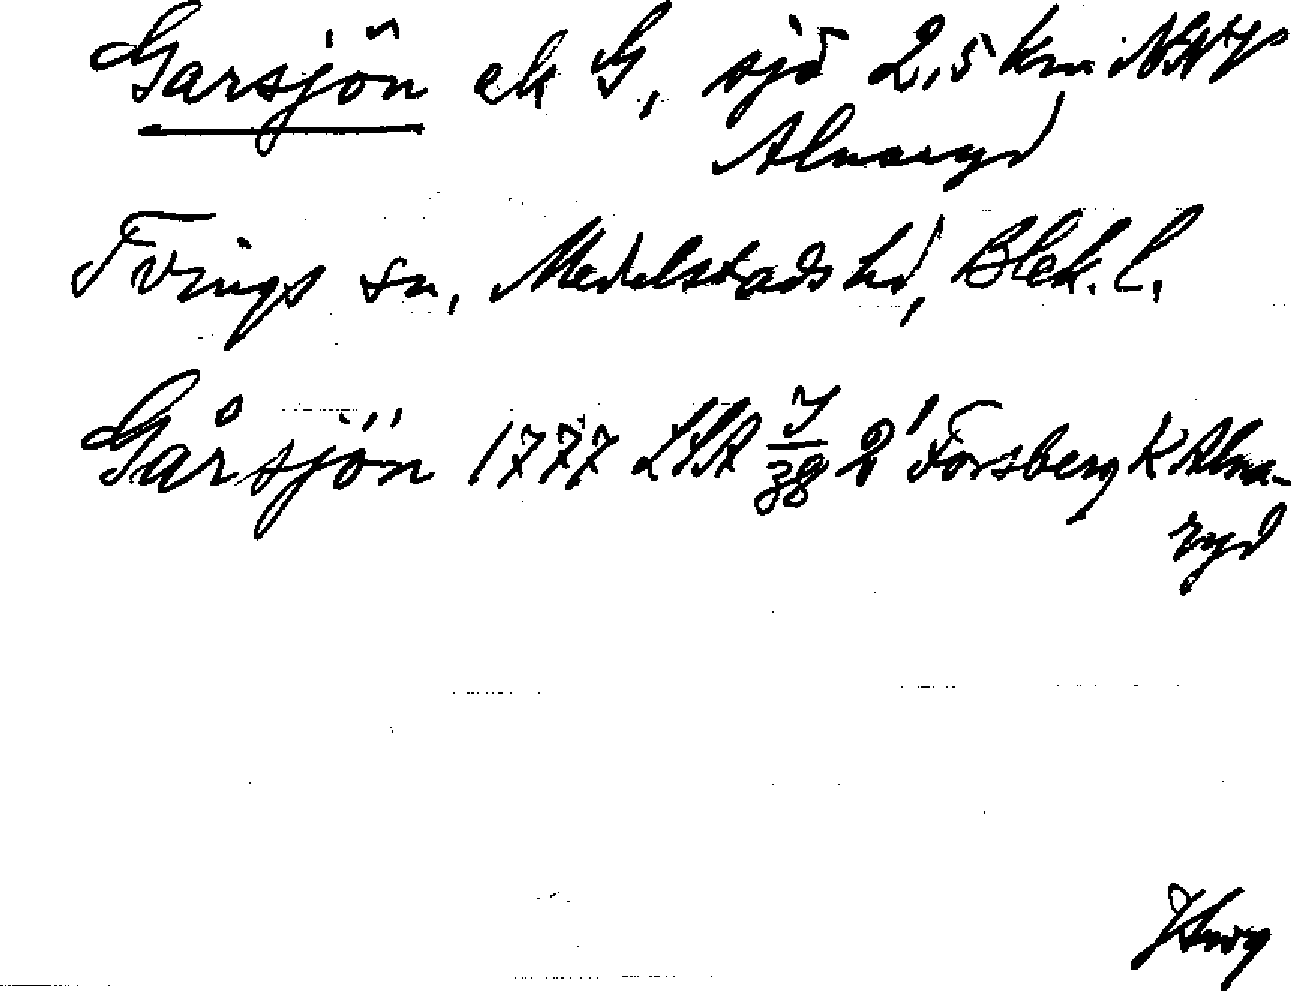 Garsjön ek G, sjö 2,5 km NNV
Alnaryd
Tvings sn, Medelstads hd, Blek. l.
Gårsjön 1777 LSA 2' Forsberg K Alna-
ryd